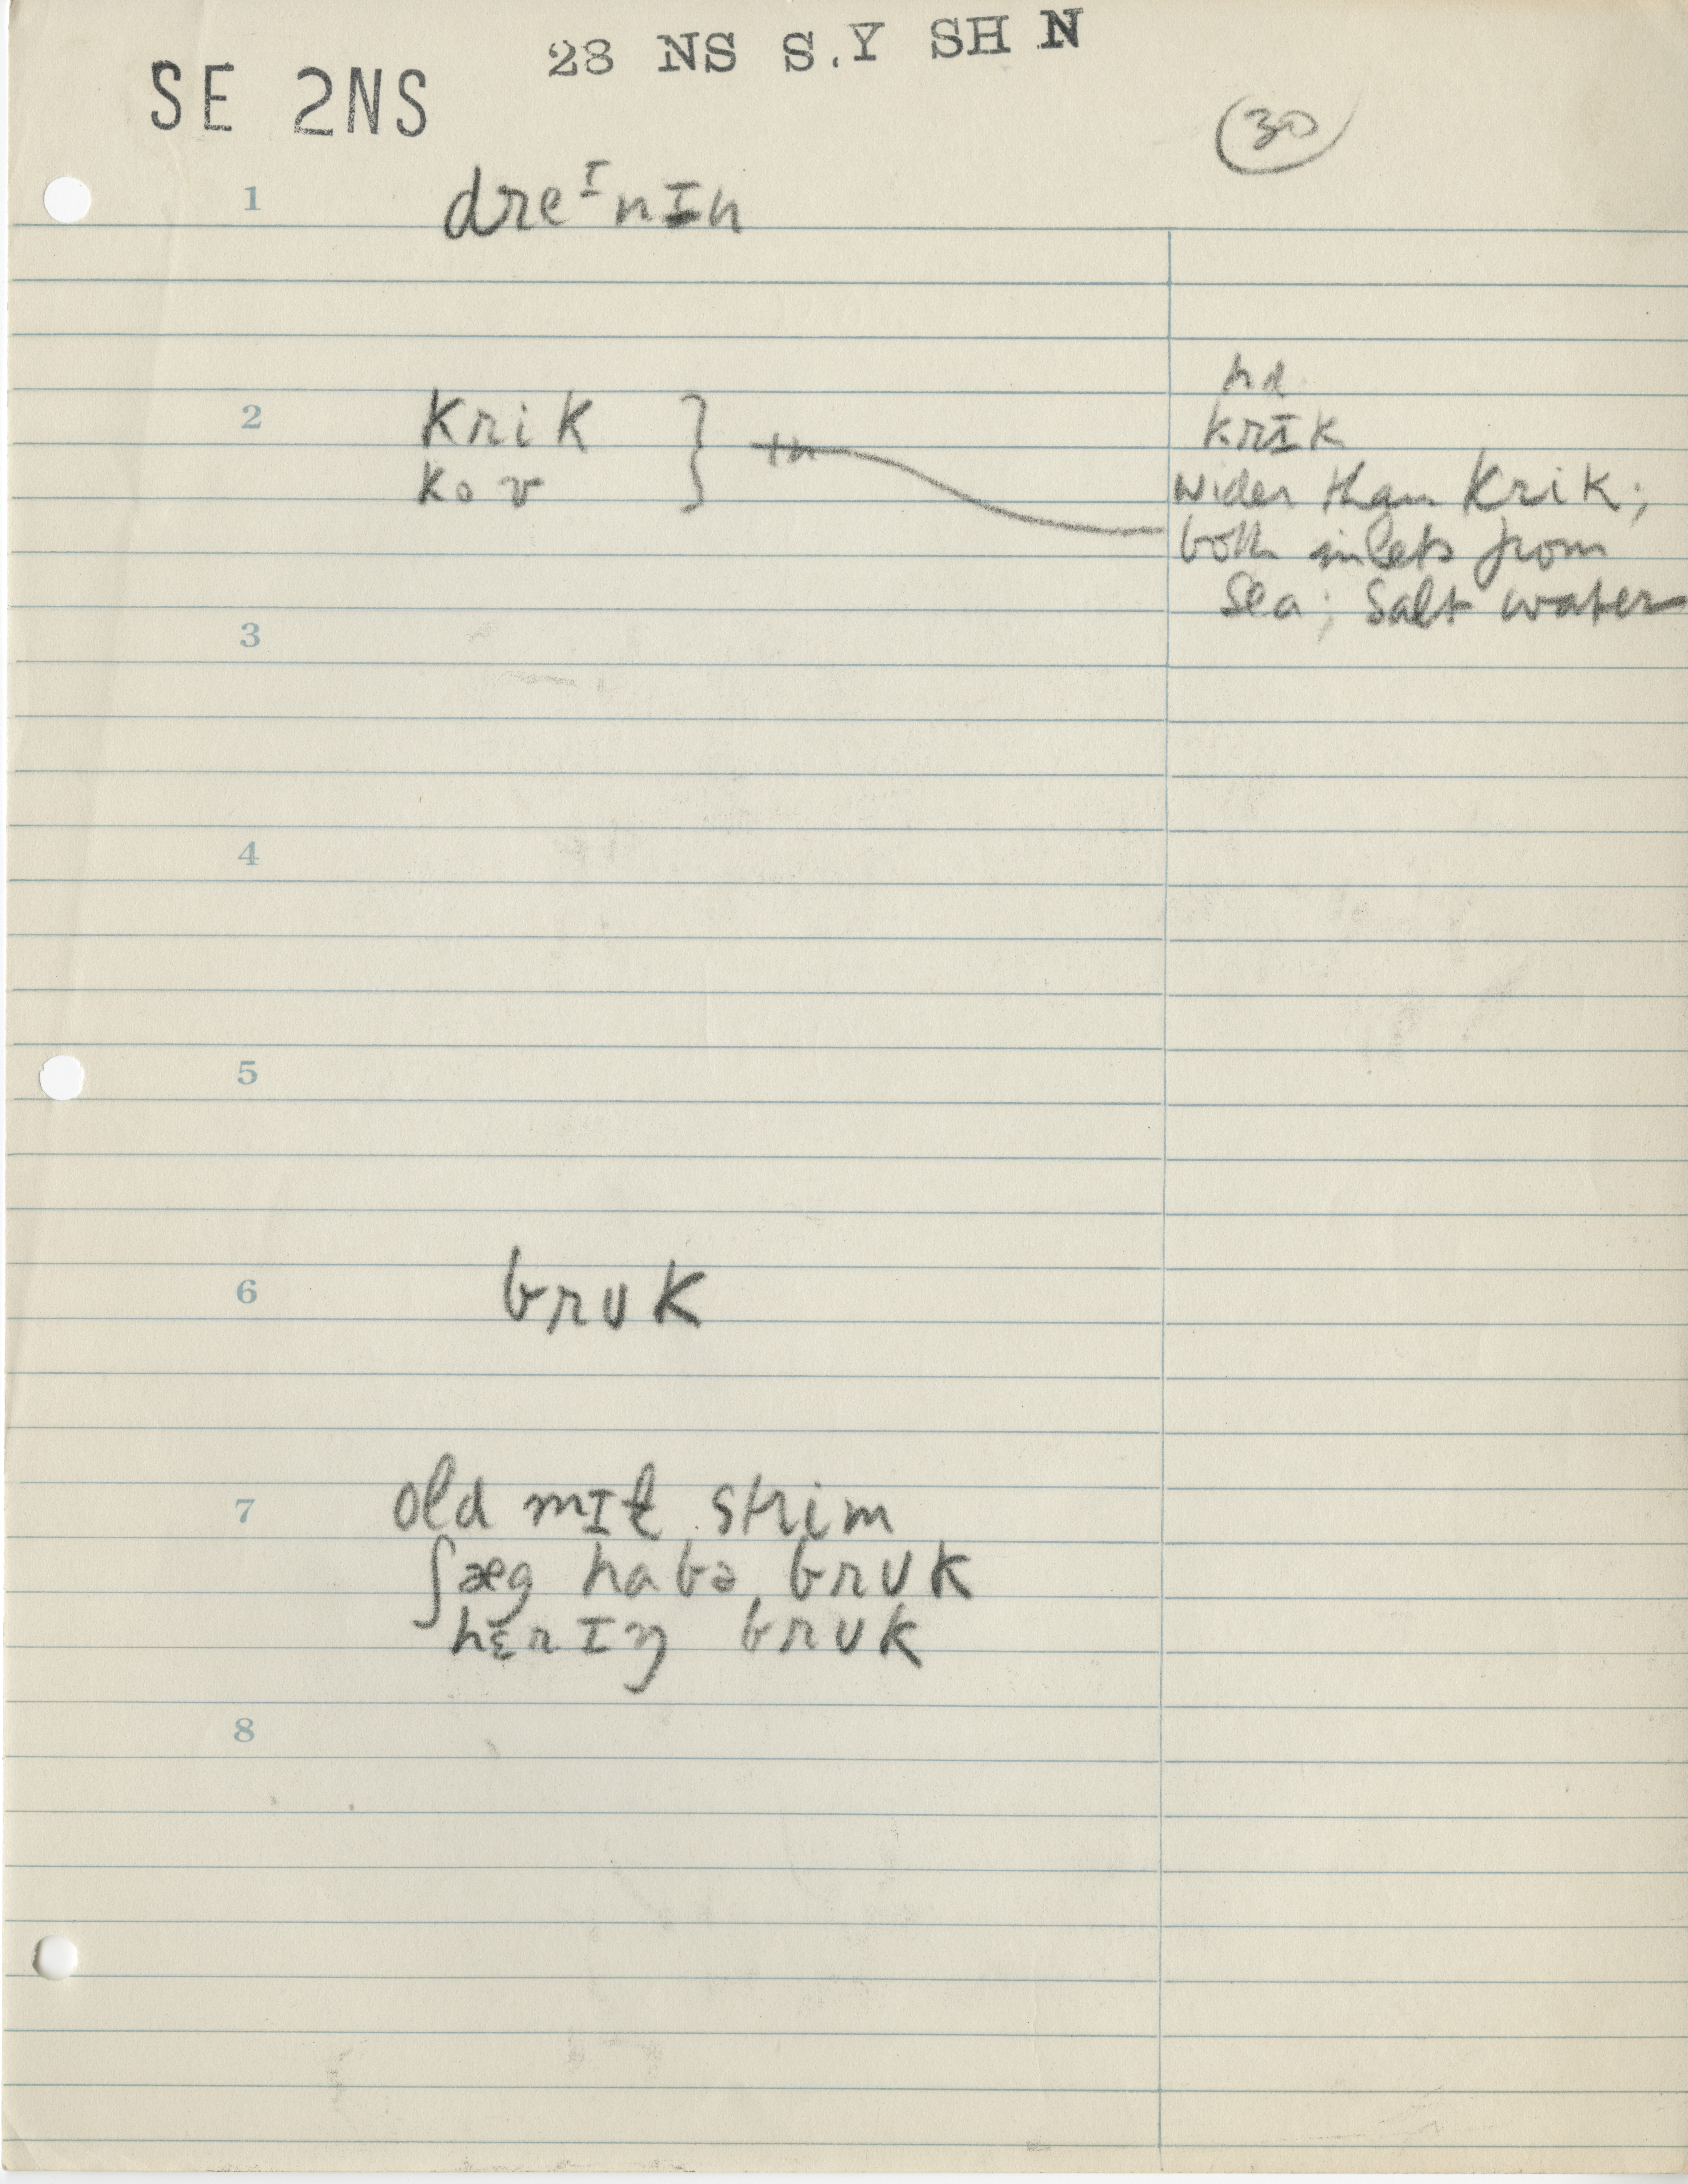 23 NS S.Y SH N
SE 2NS
30
1 dreᴵnɪn
2 krik
kov
hd
krɪk
wider than krik;
both inlets from
sea; salt water
3
4
5
6 brʊk
7 old mɪɫ strim
ʃæg habə brʊk
hɛrɪŋ brʊk
8